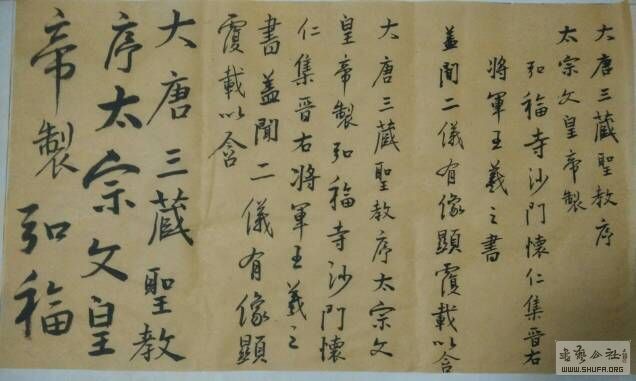 大唐三藏聖教序
太宗文皇帝製
弘福寺沙門懷仁集晉右
将軍王羲之書
蓋聞二儀有像顯覆載以含
大唐三藏聖教序太宗文
皇帝製弘福寺沙門懷
仁集晉右将軍王羲之
書蓋聞二儀有像顯
覆載以含
大唐三藏聖教
序太宗文皇
帝製弘福
書藝公社
WWW.SHUFA.ORG